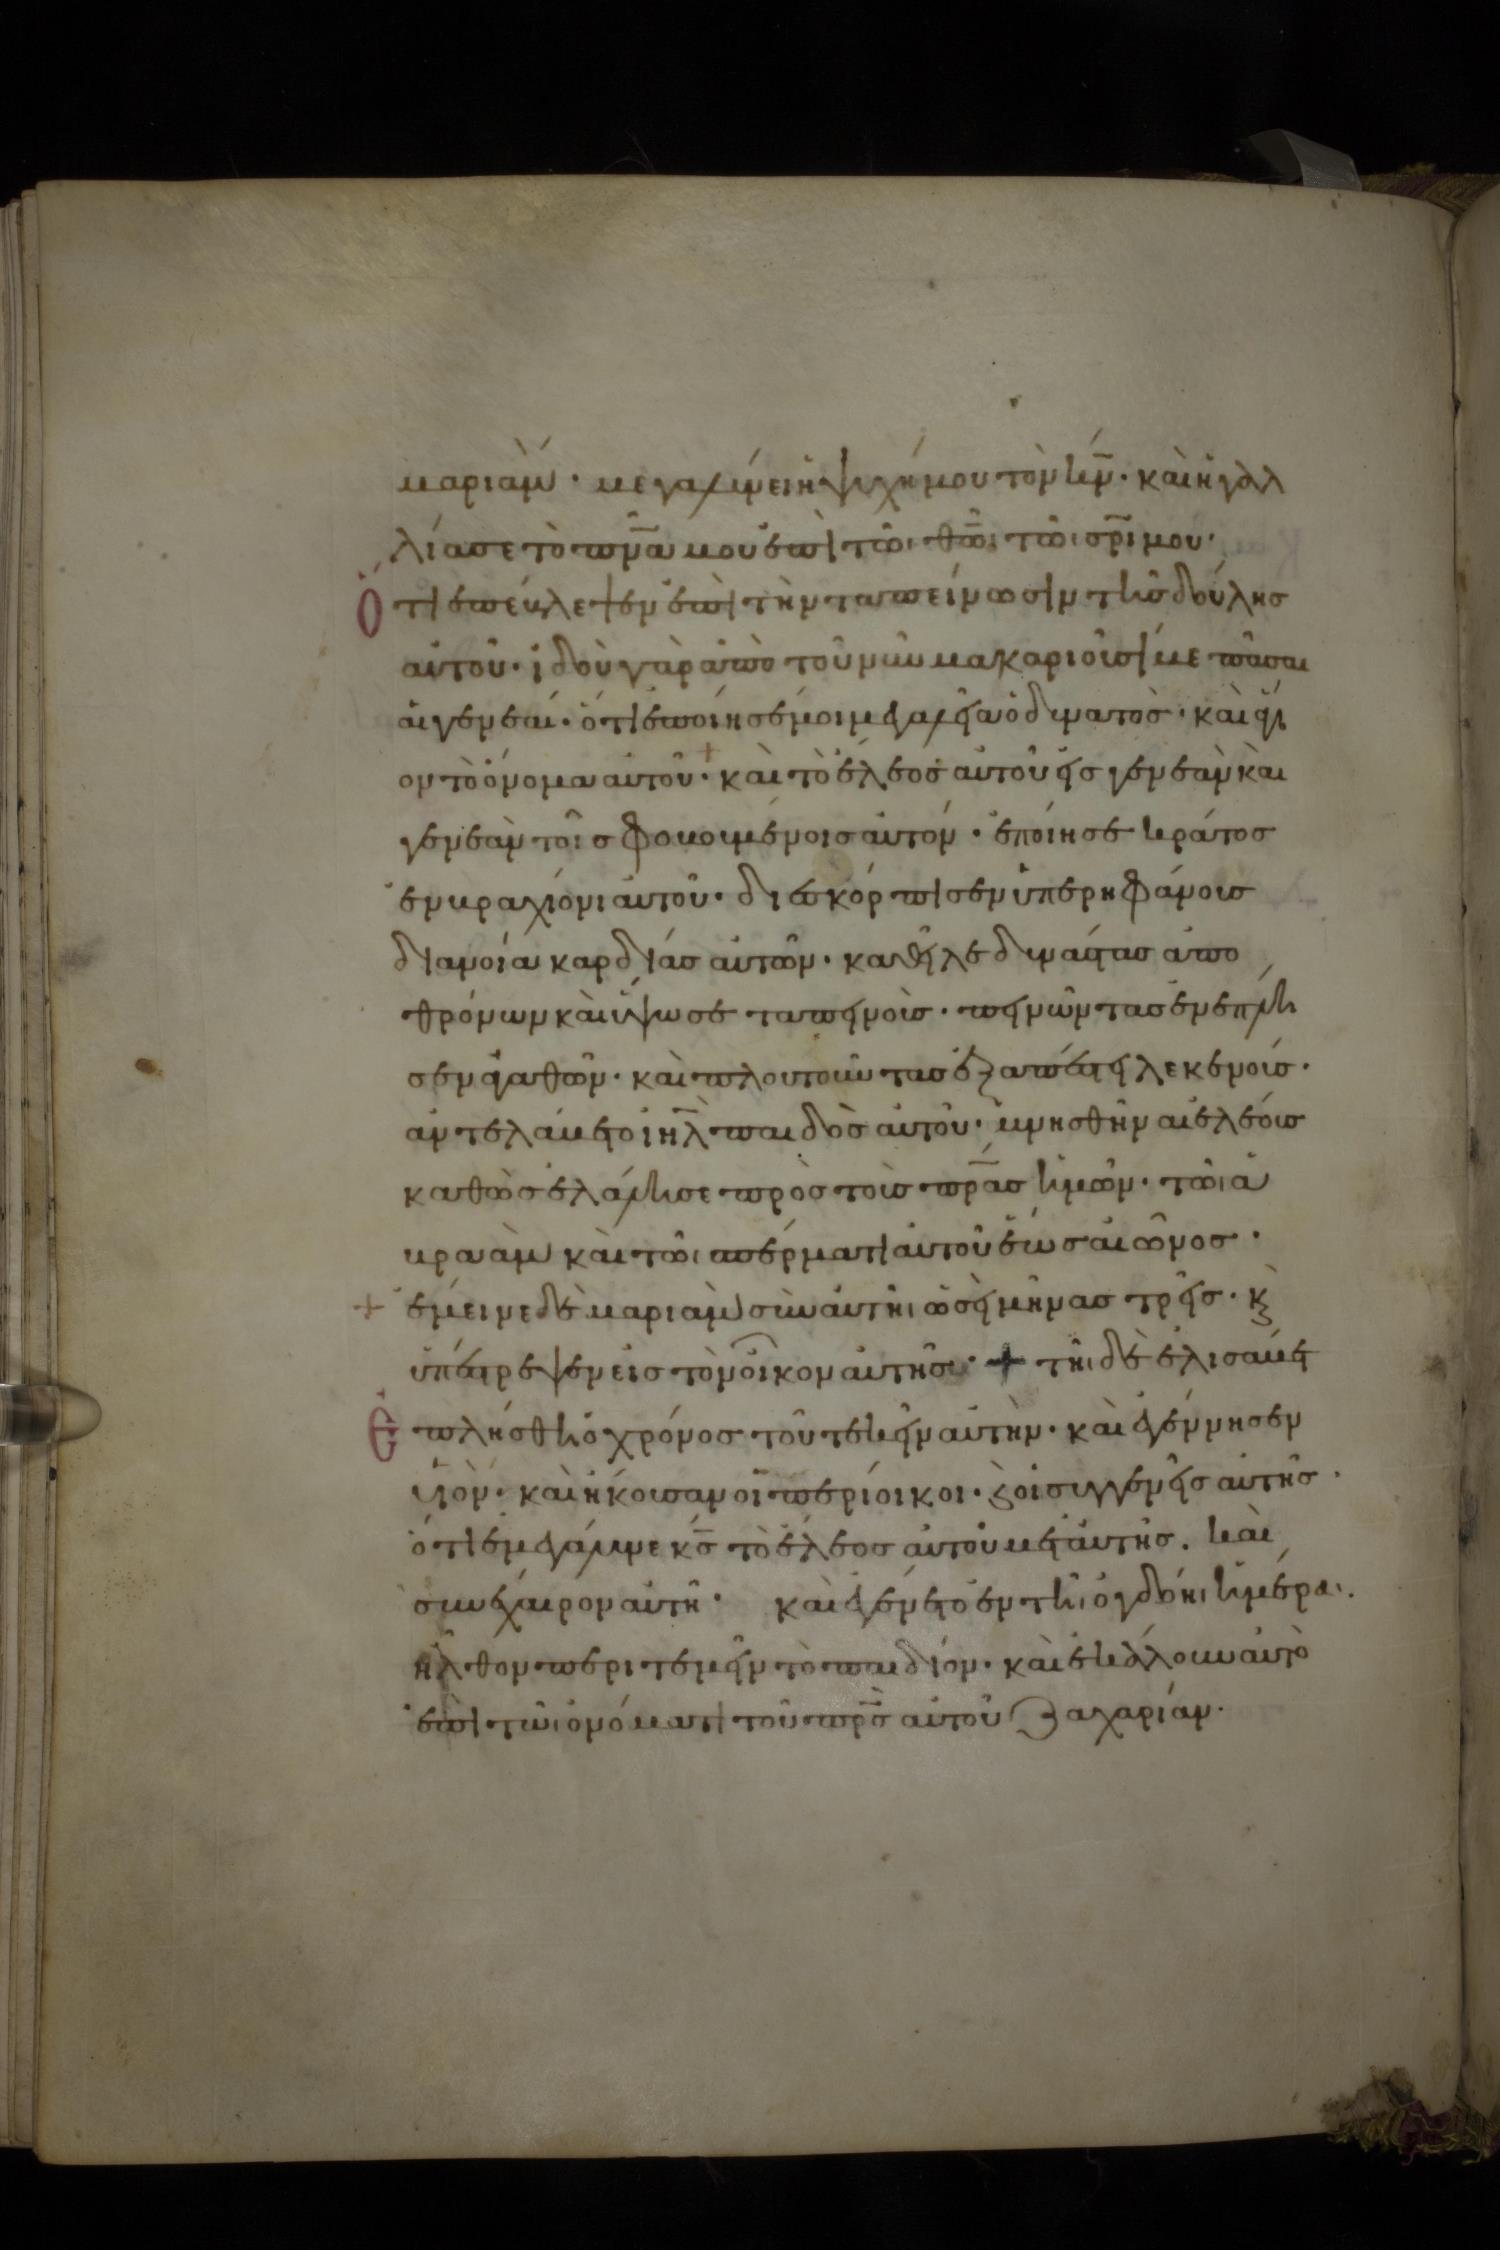 μαριάμ· μεγαλύνει ἡ ψυχή μου τὸν κ̅ν̅· καὶ ἠγαλ
λίασε τὸ π̅ν̅α̅ μου ἐπὶ τῶι θ̅ω̅ι τῶι σ̅ρ̅ι μου·
Ὅτι ἐπέβλεψεν ἐπὶ τὴν ταπείνωσιν τῆς δούλης
αὐτοῦ· ἰδοὺ γὰρ ἀπὸ τοῦ νῦν μακαριοῦσί με πᾶσαι
αἱ γενεαί· ὅτι ἐποίησέ μοι μεγαλεῖα ὁ δυνατὸς· καὶ ἅγι
ον τὸ ὄνομα αὐτοῦ· καὶ τὸ ἔλεος αὐτοῦ εἰς γενεὰν καὶ
γενεὰν τοῖς φοβουμένοις αὐτόν· ἐποίησε κράτος
ἐν βραχίονι αὐτοῦ· διεσκόρπισεν ὑπερηφάνους
διανοία καρδίας αὐτῶν· καθεῖλε δυνάστας ἀπο
θρόνων καὶ ὕψωσε ταπεινοὺς· πεινῶντας ἐνέπλη
σεν ἀγαθῶν· καὶ πλουτοῦντας ἐξαπέστειλε κενούς·
ἀντελάβετο ι̅η̅λ̅ παιδὸς αὐτοῦ· μνησθῆναι ἐλέους
καθὼς ἐλάλησε πρὸς τοὺς π̅ρ̅ας ἡμῶν· τῶι ἀ
βραὰμ καὶ τῶι σπέρματι αὐτοῦ ἕως αἰῶνος·
+ ἔμεινε δὲ μαριὰμ σὺν αὐτῆι ὡσεὶ μῆνας τρεῖς· κ̀
ὑπέστρεψεν εἰς τὸν οἶκον αὐτῆς· + τῆι δὲ ἐλισάβετ
Ἐπλήσθη ὁ χρόνος τοῦ τεκεῖν αὐτὴν· καὶ ἐγέννησεν
υἱὸν· καὶ ἤκουσαν οἱ περίοικοι· κ̀ οἱ συγγενεῖς αὐτῆς·
ὅτι ἐμεγάλυνε κ̅ς̅ τὸ ἔλεος αὐτοῦ μετ' αὐτῆς. καὶ
συνέχαιρον αὐτῆ· καὶ ἐγένετο ἐν τῆι ὀγδόηι ἡμέραι.
ἦλθον περιτεμεῖν τὸ παιδίον· καὶ ἐκάλουν αὐτὸ
ἐπὶ τῶι ὀνόματι τοῦ π̅ρ̅ς̅ αὐτοῦ Ζαχαρίαν·